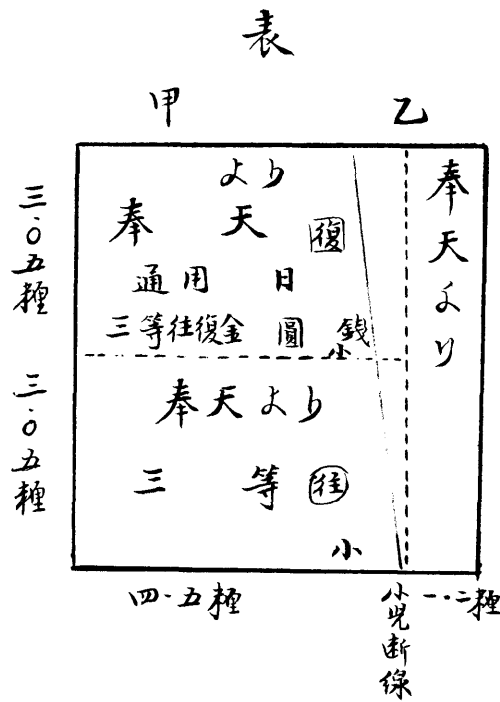 表
甲
乙
三.〇五糎
より
奉天
復
通用 日
三等往復金 圓 銭
小
三.〇五糎
奉天より
三等
往
小
奉天より
四.五糎
小児断線
一.二糎